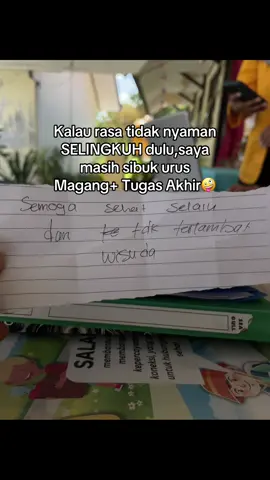 Kalau rasa tidak nyaman
SELINGKUH dulu,saya
masih sibuk urus
Magang+ Tugas Akhir🤪
Semoga sehat selalu
dan ke tdk terlambat
wisuda
SALA